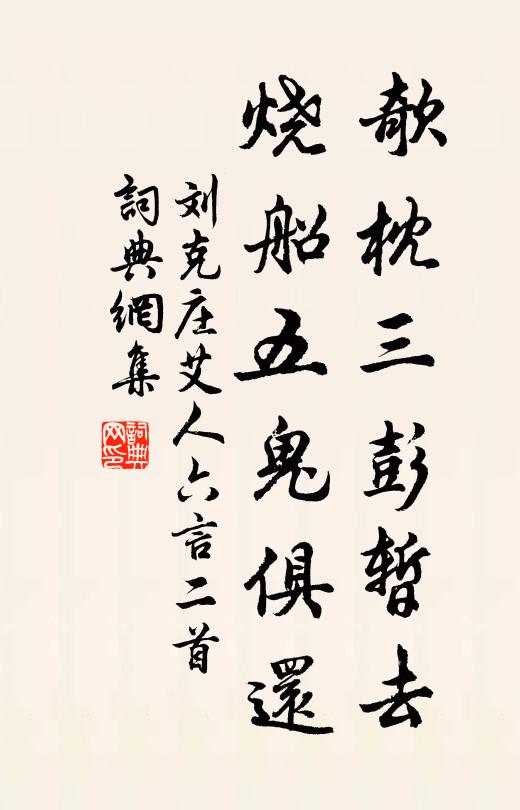 欹枕三彭暫去
烧船五鬼俱還
刘克庄艾人六言二首
詞典網集
詞典網印